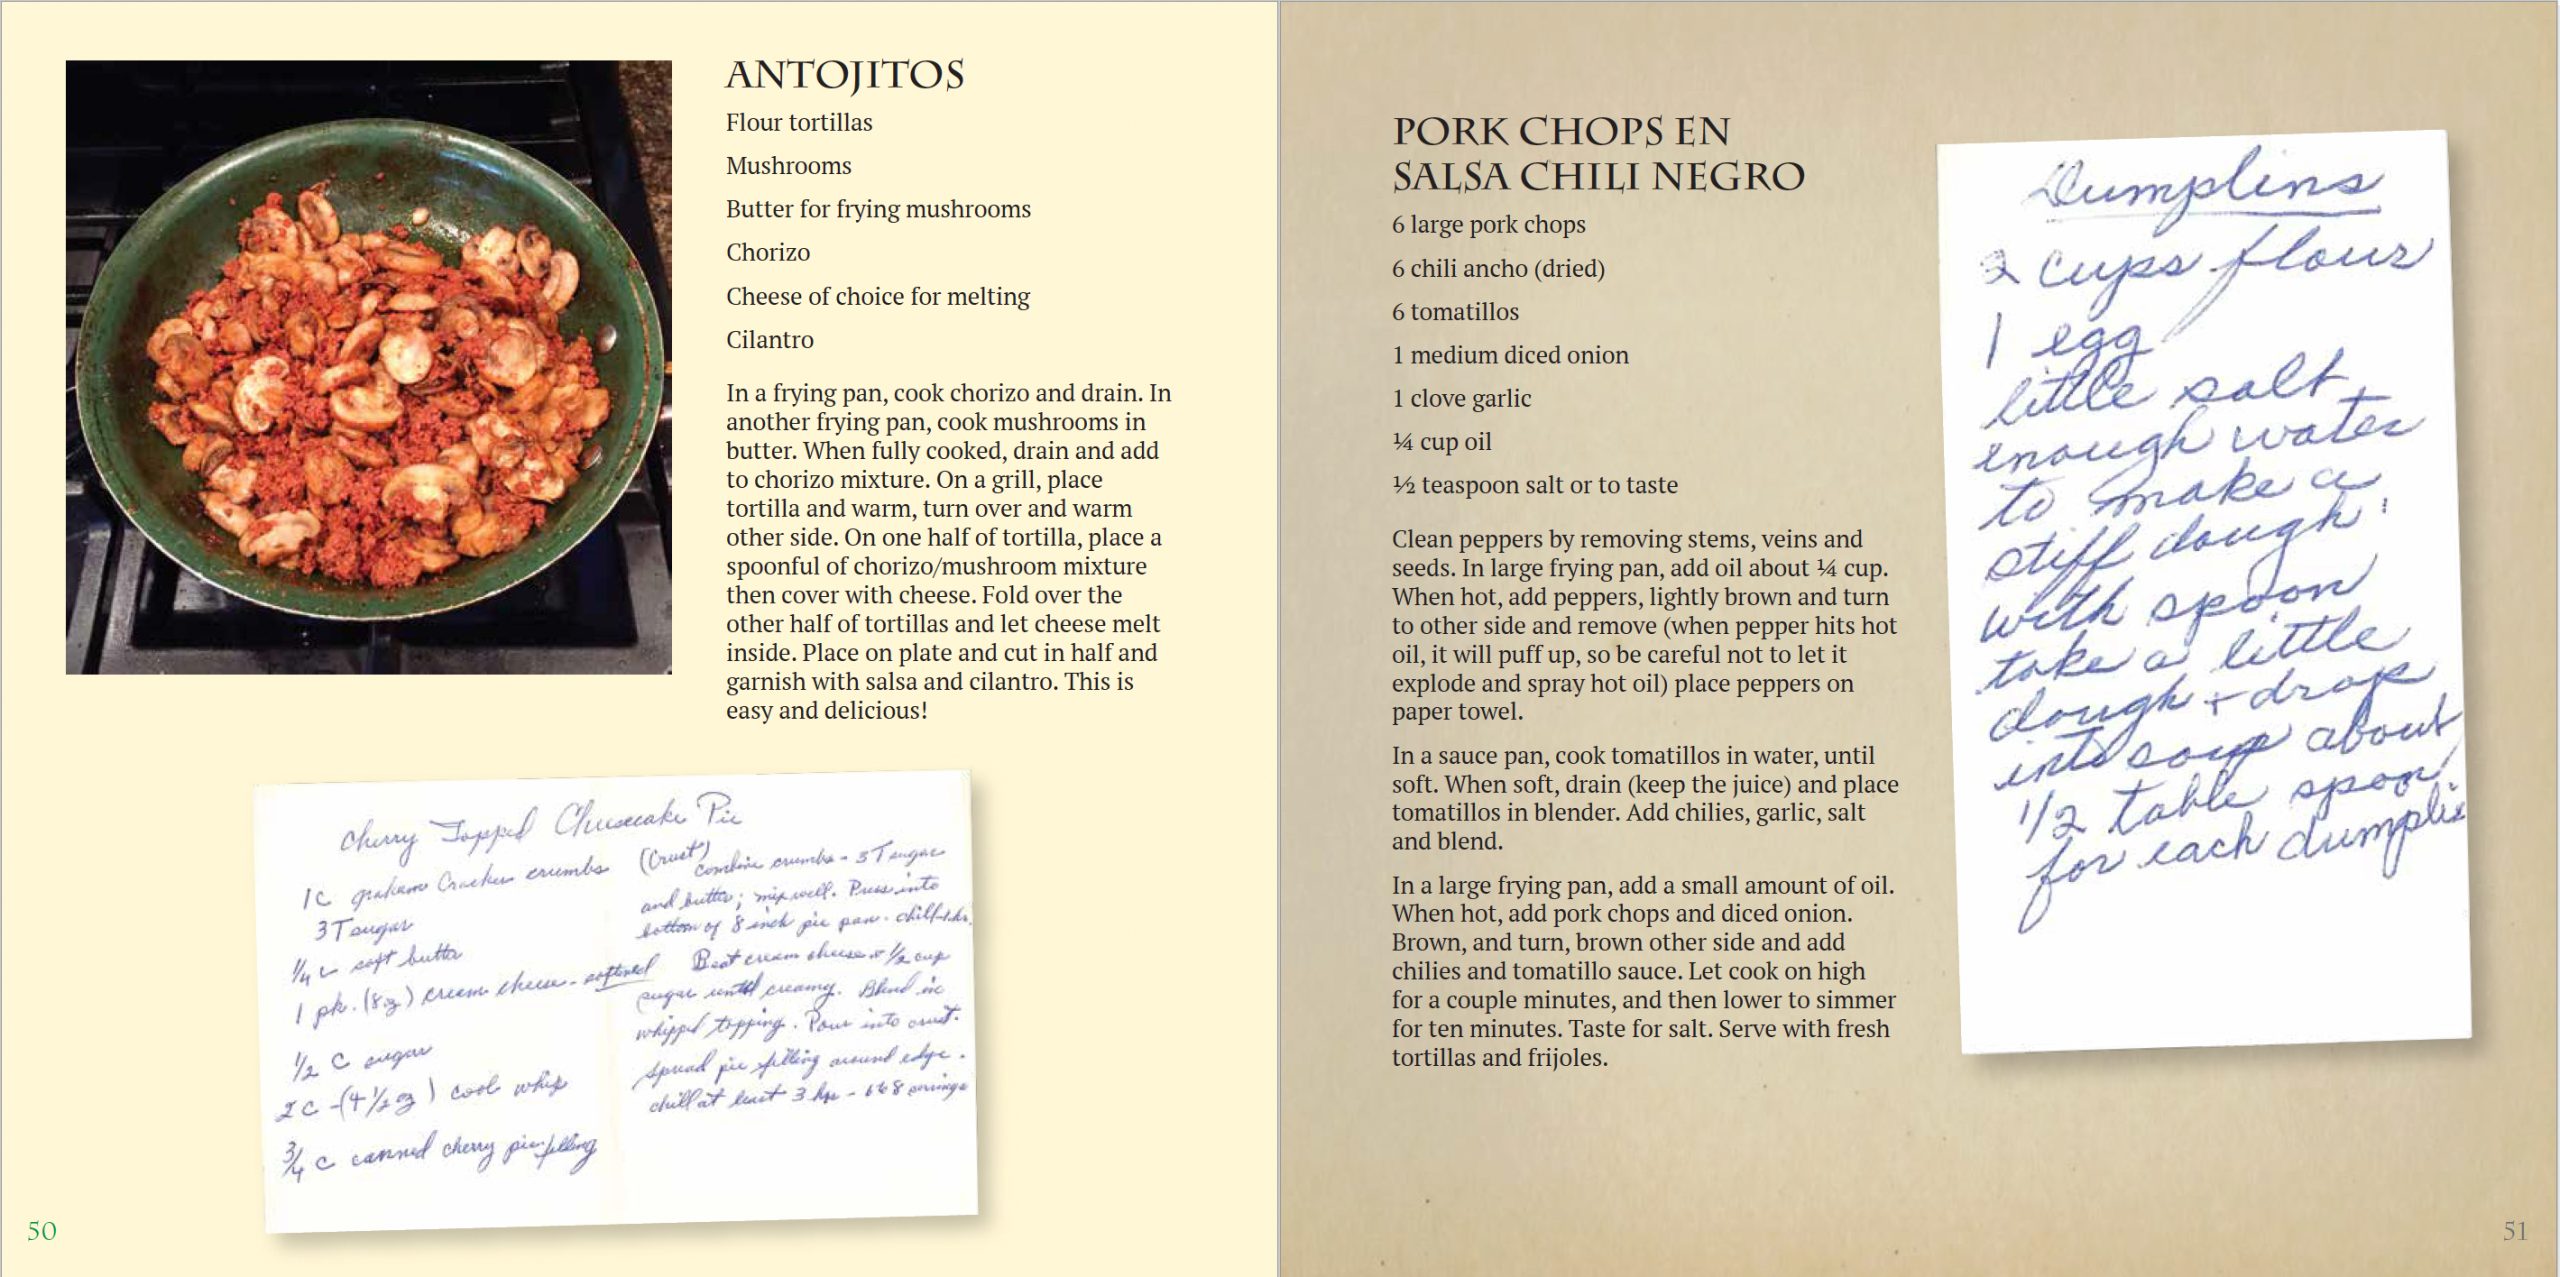 ANTOJITOS
Flour tortillas
Mushrooms
Butter for frying mushrooms
Chorizo
Cheese of choice for melting
Cilantro
In a frying pan, cook chorizo and drain. In
another frying pan, cook mushrooms in
butter. When fully cooked, drain and add
to chorizo mixture. On a grill, place
tortilla and warm, turn over and warm
other side. On one half of tortilla, place a
spoonful of chorizo/mushroom mixture
then cover with cheese. Fold over the
other half of tortillas and let cheese melt
inside. Place on plate and cut in half and
garnish with salsa and cilantro. This is
easy and delicious!
Cherry Topped Cheesecake Pie
1 C graham Cracker crumbs
3 T sugar
1/4 c soft butter
1 pk. (8 oz) cream cheese - softened
1/2 C sugar
2 C - (4 1/2 oz) cool whip
3/4 c canned cherry pie filling
(Crust)
combine crumbs - 3 T sugar
and butter; mix well. Press into
bottom of 8 inch pie pan. chill 1 hr.
Beat cream cheese & 1/2 cup
sugar until creamy. Blend in
whipped topping. Pour into crust.
spread pie filling around edge.
chill at least 3 hrs - 6 to 8 servings
50
PORK CHOPS EN
SALSA CHILI NEGRO
6 large pork chops
6 chili ancho (dried)
6 tomatillos
1 medium diced onion
1 clove garlic
¼ cup oil
½ teaspoon salt or to taste
Clean peppers by removing stems, veins and
seeds. In large frying pan, add oil about ¼ cup.
When hot, add peppers, lightly brown and turn
to other side and remove (when pepper hits hot
oil, it will puff up, so be careful not to let it
explode and spray hot oil) place peppers on
paper towel.
In a sauce pan, cook tomatillos in water, until
soft. When soft, drain (keep the juice) and place
tomatillos in blender. Add chilies, garlic, salt
and blend.
In a large frying pan, add a small amount of oil.
When hot, add pork chops and diced onion.
Brown, and turn, brown other side and add
chilies and tomatillo sauce. Let cook on high
for a couple minutes, and then lower to simmer
for ten minutes. Taste for salt. Serve with fresh
tortillas and frijoles.
Dumplins
2 cups flour
1 egg
little salt
enough water
to make a
stiff dough.
with spoon
take a little
dough + drop
into soup about
1/2 table spoon
for each dumplin
51